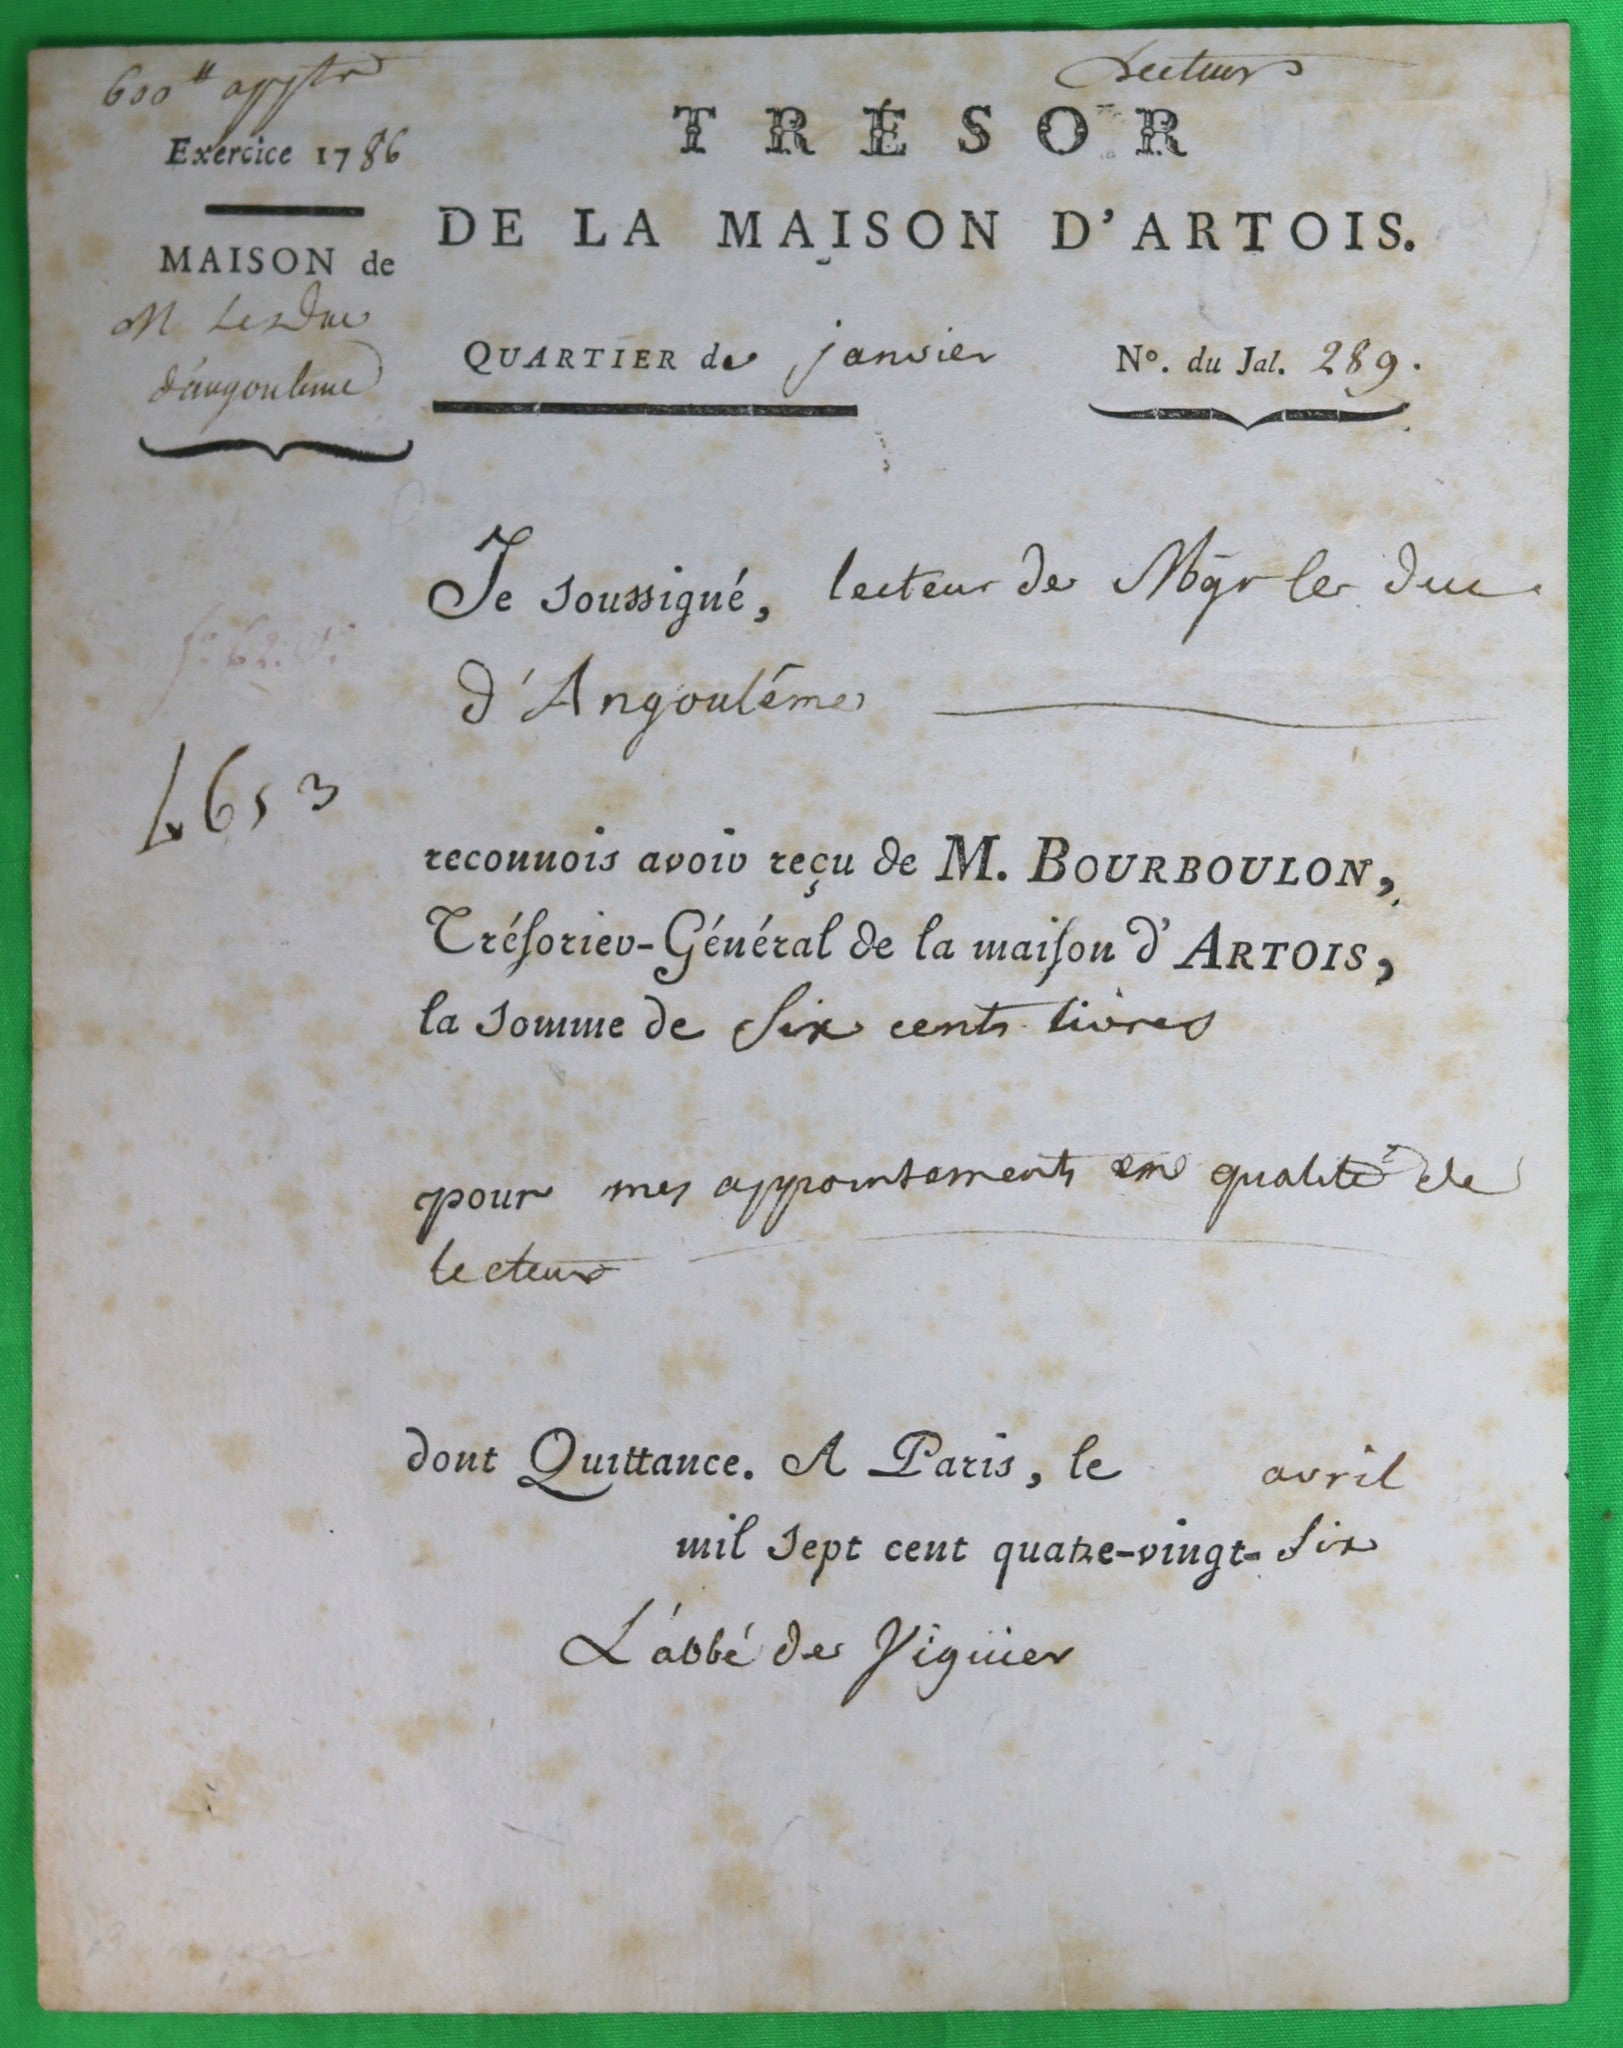 600tt appts
Lecteur
Exercice 1786
TRÉSOR
DE LA MAISON D'ARTOIS.
MAISON de
M Le Duc
d'angouleme
QUARTIER de janvier
N°. du Jal. 289.
Je soussigné, lecteur de Mgr le duc
d'Angoulême
f° 62. v°
4653
reconnois avoir reçu de M. BOURBOULON,
Trésorier-Général de la maison d'ARTOIS,
la somme de Six cents livres
pour mes appointements en qualité de
lecteur
dont Quittance. A Paris, le avril
mil sept cent quatre-vingt-Six
L'abbé de Viguier